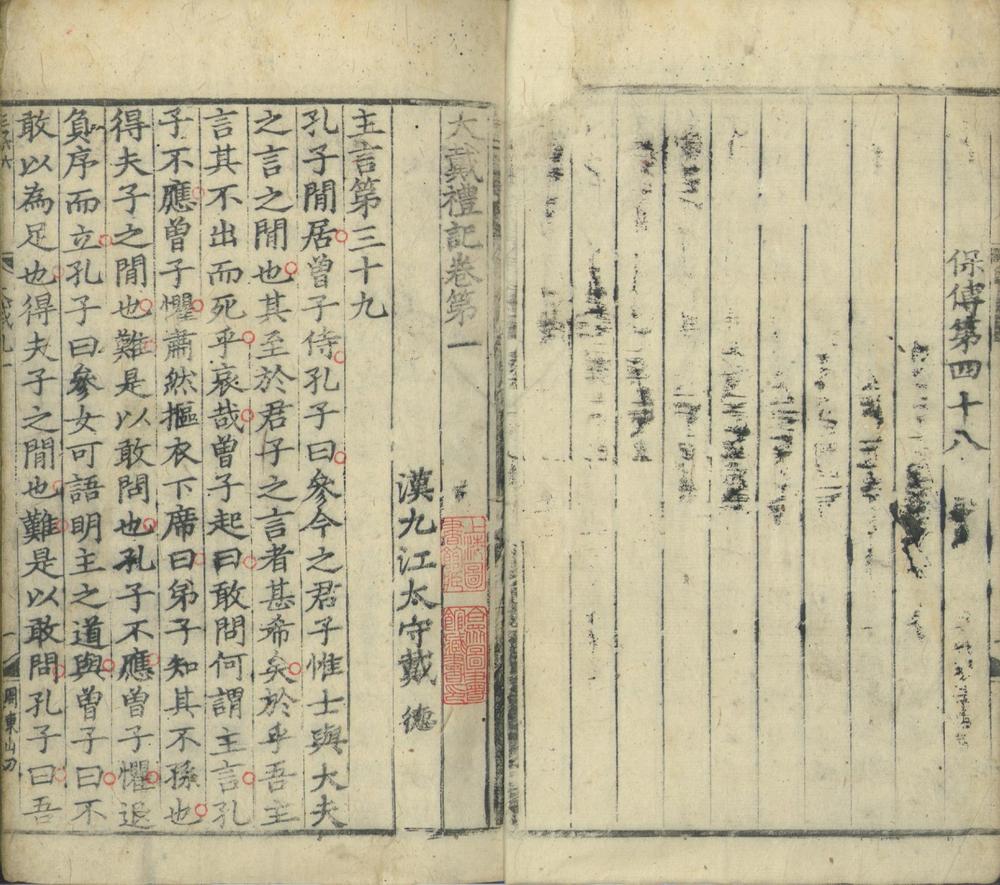 保傅第四十八
大戴禮記卷第一
上海圖書館藏
合眾圖書館藏書印
漢九江太守戴 德
主言第三十九
孔子閒居曾子侍孔子曰參今之君子惟士與大夫
之言之閒也其至於君子之言者甚希矣於乎吾主
言其不出而死乎哀哉曾子起曰敢問何謂主言孔
子不應曾子懼肅然摳衣下席曰弟子知其不孫也
得夫子之閒也難是以敢問也孔子不應曾子懼退
負序而立孔子曰參女可語明主之道與曾子曰不
敢以為足也得夫子之閒也難是以敢問孔子曰吾
一
周東山刀